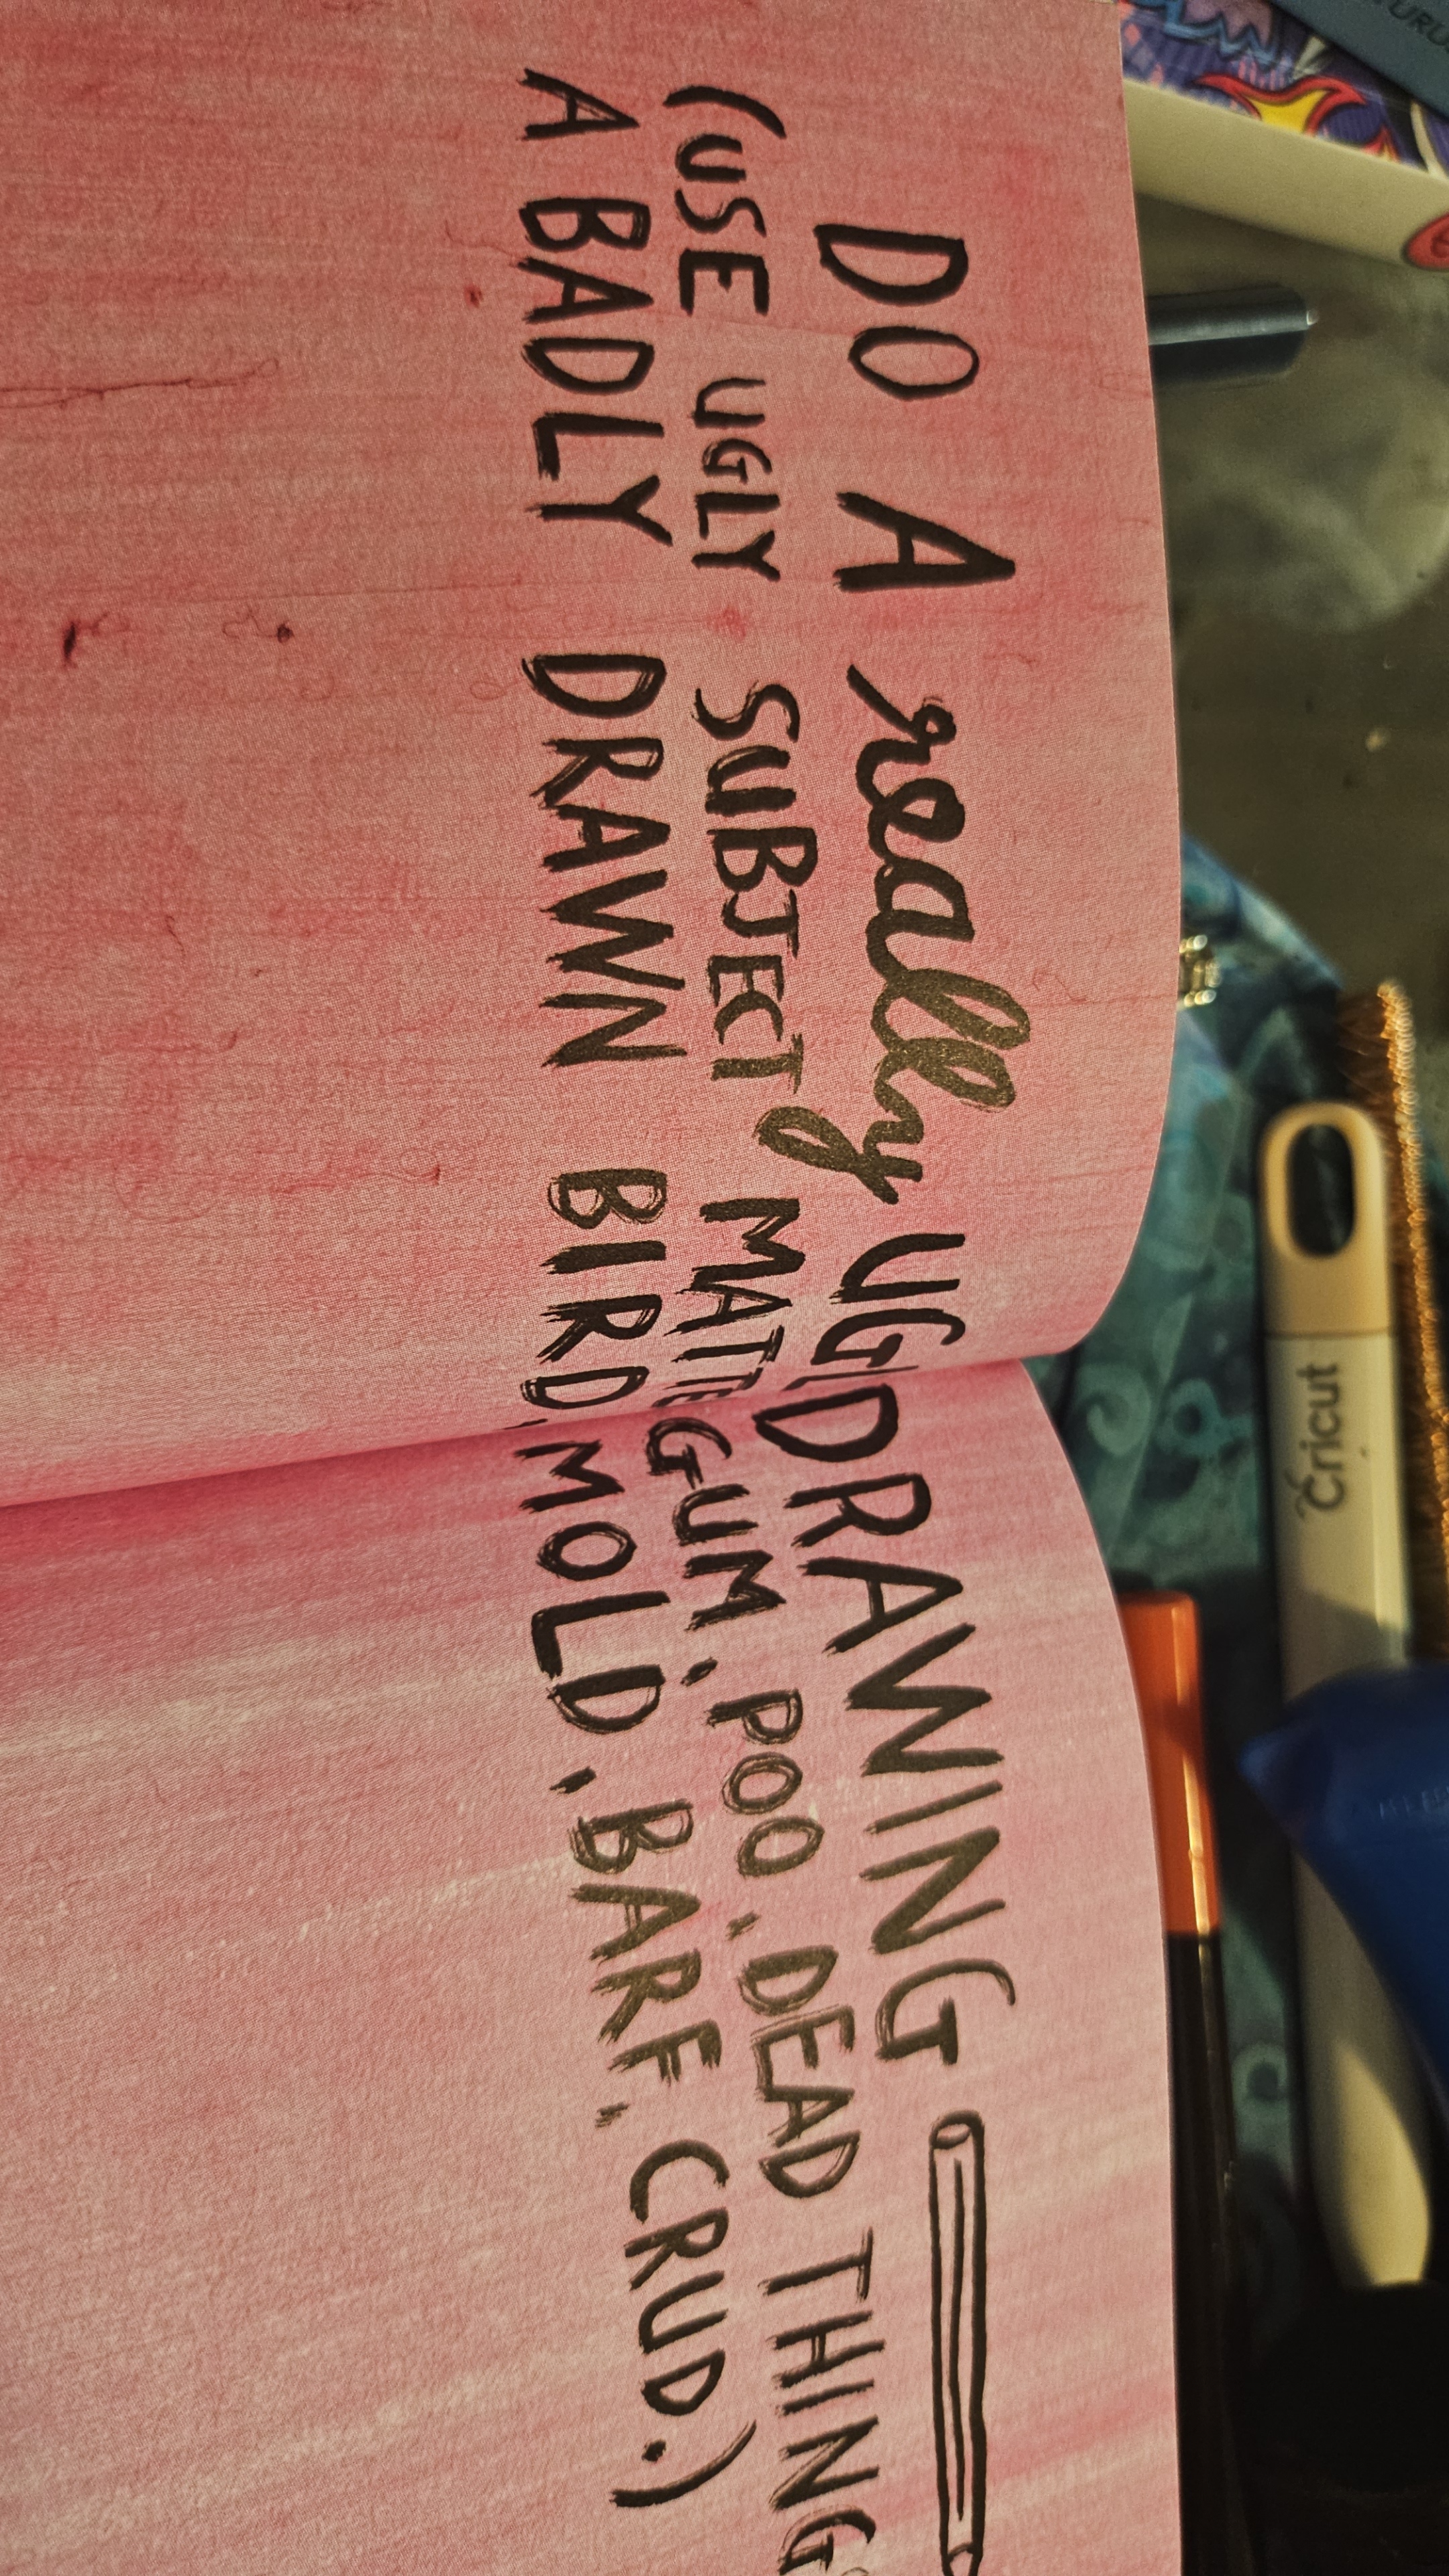 DO A really UGLY DRAWING
(USE UGLY SUBJECT MATTER: GUM, POO, DEAD THINGS,
A BADLY DRAWN BIRD, MOLD, BARF, CRUD.)
Cricut